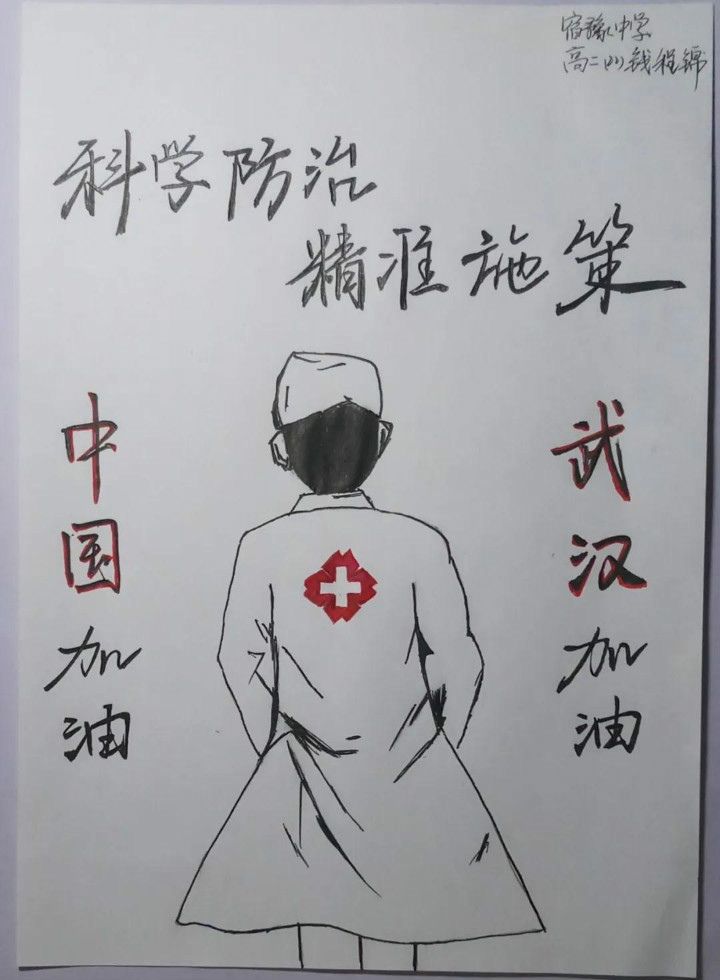 宿豫中学
高二(1)钱程锦
科学防治
精准施策
中国加油
武汉加油